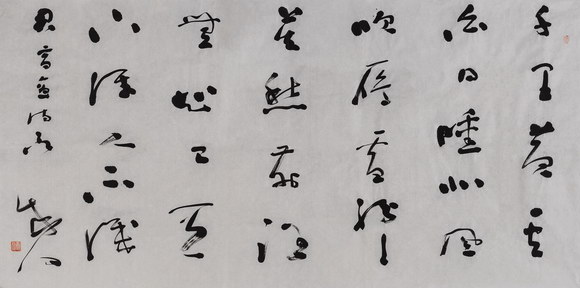 千里黄云
白日曛北风
吹雁雪紛紛
莫愁前路
無知己天
下谁人不識
君高適诗